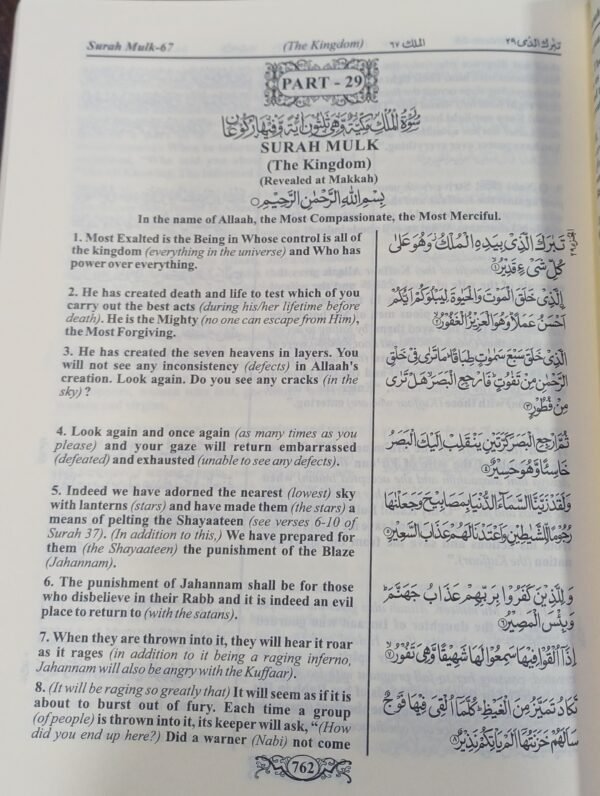 Surah Mulk-67 (The Kingdom) الملك ٦٧ تبرك الذى ٢٩
PART - 29
سُوْرَةُ الْمُلْكِ مَكِّيَّةٌ وَّهِىَ ثَلٰثُوْنَ اٰيَةً وَّفِيْهَا رُكُوْعَانِ
SURAH MULK
(The Kingdom)
(Revealed at Makkah)
بِسْمِ اللّٰهِ الرَّحْمٰنِ الرَّحِيْمِ
In the name of Allaah, the Most Compassionate, the Most Merciful.
1. Most Exalted is the Being in Whose control is all of
the kingdom (everything in the universe) and Who has
power over everything.
تَبٰرَكَ الَّذِىْ بِيَدِهِ الْمُلْكُ وَهُوَ عَلٰى
كُلِّ شَىْءٍ قَدِيْرٌ ۝١
2. He has created death and life to test which of you
carry out the best acts (during his/her lifetime before
death). He is the Mighty (no one can escape from Him),
the Most Forgiving.
الَّذِىْ خَلَقَ الْمَوْتَ وَالْحَيٰوةَ لِيَبْلُوَكُمْ اَيُّكُمْ
اَحْسَنُ عَمَلًا وَهُوَ الْعَزِيْزُ الْغَفُوْرُ ۝٢
3. He has created the seven heavens in layers. You
will not see any inconsistency (defects) in Allaah's
creation. Look again. Do you see any cracks (in the
sky) ?
الَّذِىْ خَلَقَ سَبْعَ سَمٰوٰتٍ طِبَاقًا مَا تَرٰى فِىْ خَلْقِ
الرَّحْمٰنِ مِنْ تَفٰوُتٍ فَارْجِعِ الْبَصَرَ هَلْ تَرٰى
مِنْ فُطُوْرٍ ۝٣
4. Look again and once again (as many times as you
please) and your gaze will return embarrassed
(defeated) and exhausted (unable to see any defects).
ثُمَّ ارْجِعِ الْبَصَرَ كَرَّتَيْنِ يَنْقَلِبْ اِلَيْكَ الْبَصَرُ
خَاسِئًا وَّهُوَ حَسِيْرٌ ۝٤
5. Indeed we have adorned the nearest (lowest) sky
with lanterns (stars) and have made them (the stars) a
means of pelting the Shayaateen (see verses 6-10 of
Surah 37). (In addition to this,) We have prepared for
them (the Shayaateen) the punishment of the Blaze
(Jahannam).
وَلَقَدْ زَيَّنَّا السَّمَآءَ الدُّنْيَا بِمَصَابِيْحَ وَجَعَلْنٰهَا
رُجُوْمًا لِّلشَّيٰطِيْنِ وَاَعْتَدْنَا لَهُمْ عَذَابَ السَّعِيْرِ ۝٥
6. The punishment of Jahannam shall be for those
who disbelieve in their Rabb and it is indeed an evil
place to return to (with the satans).
وَلِلَّذِيْنَ كَفَرُوْا بِرَبِّهِمْ عَذَابُ جَهَنَّمَ
وَبِئْسَ الْمَصِيْرُ ۝٦
7. When they are thrown into it, they will hear it roar
as it rages (in addition to it being a raging inferno,
Jahannam will also be angry with the Kuffaar).
اِذَآ اُلْقُوْا فِيْهَا سَمِعُوْا لَهَا شَهِيْقًا وَّهِىَ تَفُوْرُ ۝٧
8. (It will be raging so greatly that) It will seem as if it is
about to burst out of fury. Each time a group
(of people) is thrown into it, its keeper will ask, “(How
did you end up here?) Did a warner (Nabi) not come
تَكَادُ تَمَيَّزُ مِنَ الْغَيْظِ كُلَّمَآ اُلْقِىَ فِيْهَا فَوْجٌ
سَاَلَهُمْ خَزَنَتُهَآ اَلَمْ يَاْتِكُمْ نَذِيْرٌ ۝٨
762